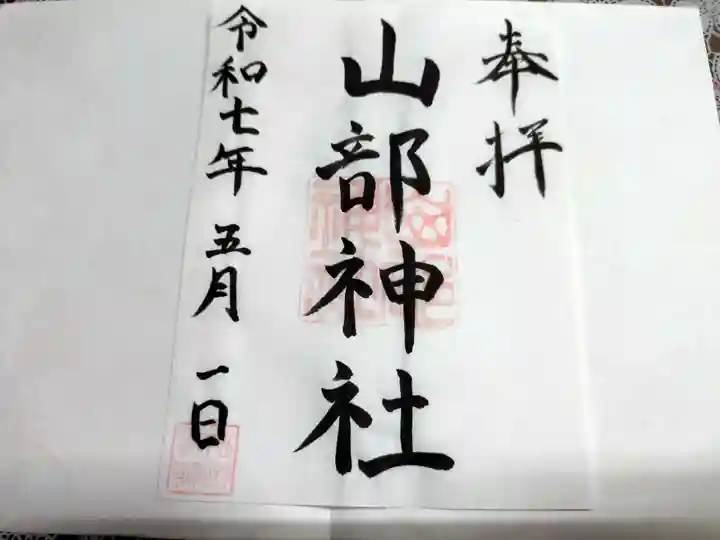 奉拝
山部神社
令和七年 五月 一日